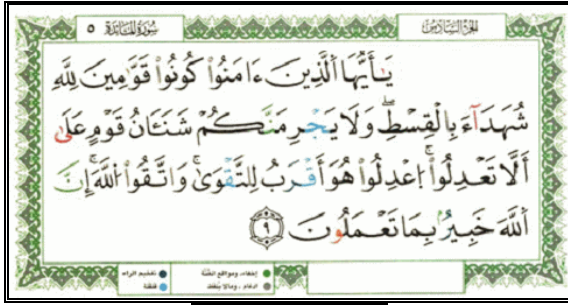 الجزء السادس سورة المائدة ٥
يَٰٓأَيُّهَا ٱلَّذِينَ ءَامَنُوا۟ كُونُوا۟ قَوَّٰمِينَ لِلَّهِ
شُهَدَآءَ بِٱلْقِسْطِ ۖ وَلَا يَجْرِمَنَّكُمْ شَنَـَٔانُ قَوْمٍ عَلَىٰٓ
أَلَّا تَعْدِلُوا۟ ۚ ٱعْدِلُوا۟ هُوَ أَقْرَبُ لِلتَّقْوَىٰ ۖ وَٱتَّقُوا۟ ٱللَّهَ ۚ إِنَّ
ٱللَّهَ خَبِيرٌۢ بِمَا تَعْمَلُونَ ٩
إخفاء، ومواقع الغنّة تفخيم الراء
ادغام ، ومالا يُلفظ قلقلة